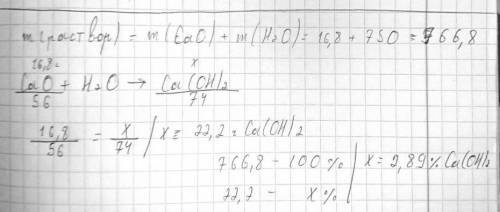 m(раствор) = m(CaO) + m(H₂O) = 16,8 + 750 = 766,8
16,8г x
CaO + H₂O → Ca(OH)₂
56 74
16,8/56 = x/74 | x = 22,2г Ca(OH)₂
766,8 – 100 % | x = 2,89% Ca(OH)₂
22,2 – x %